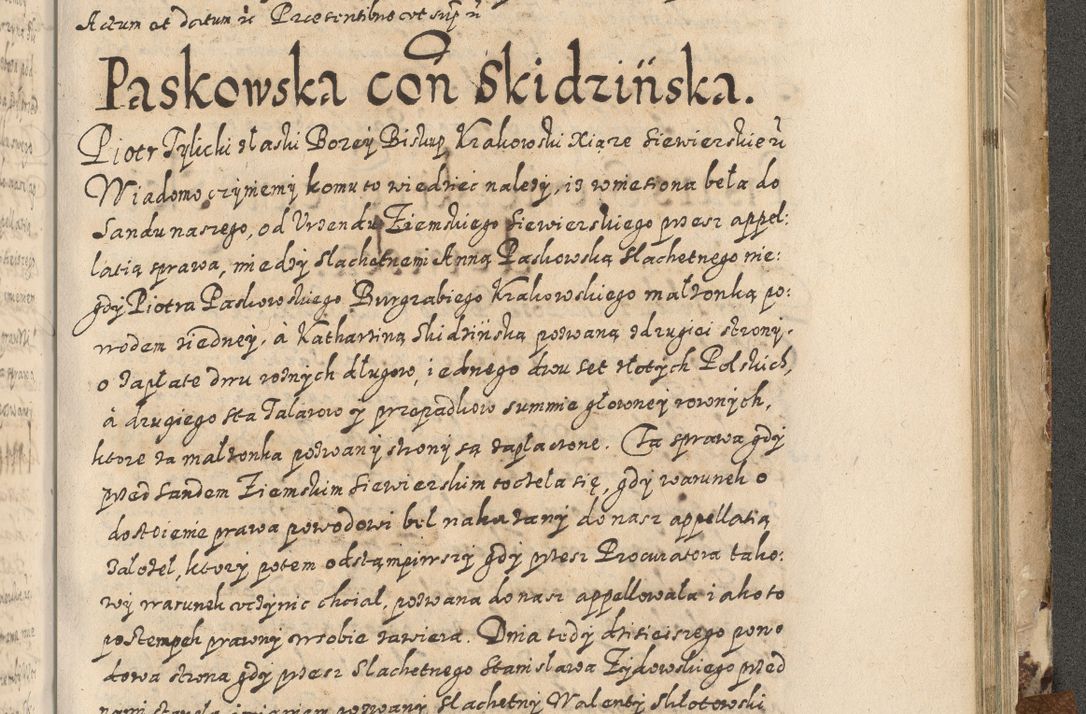 Actum et datum ut Praesentibus ut supra
Paskowska con Skidzińska.
Piotr Tylicki z łaski Bozey Biskup Krakowski Xiąze Siewierskie
Wiadomo czyniemy komu to wiedziec nalezy, iz wniesiona beła do
Sandu naszego, od Vrzendu Ziemskiego Siewierskiego przesz appel:
latią sprawa, miedzy slachetnemi Anną Paskowską slachetnego nie:
gdy Piotra Paskowskiego Burgrabiego Krakowskiego małzonką po:
wodem ziedney, à Katharziną Skidzińską pozwaną z drugiei strony.
o zapłate dwu roznych długow, iednego dwu set złotych Polskich,
à drugiego sta Talarow y przepadkow summie głowney rownych,
ktore za małzonka pozwany strony są zapłaczone. Ta sprawa gdy
przed Sandem Ziemskim Siewierskim toczeła się, gdy warunek o
dosicienie prawa powodowi beł nakazany do nasz appellatią
załozeł, ktory potem odstampiwszy gdy przesz Procuratora tako:
wy warunek vczynic chciał, pozwana do nasz appellowała iako to
postempek prawny w sobie zawiera. Dnia tedy dzisieiszego powo
dowa strona gdy przesz Slachetnego Stanisława Zydowskiego przed
nami stawała pozwany Slachetny Walenty Skłotowski